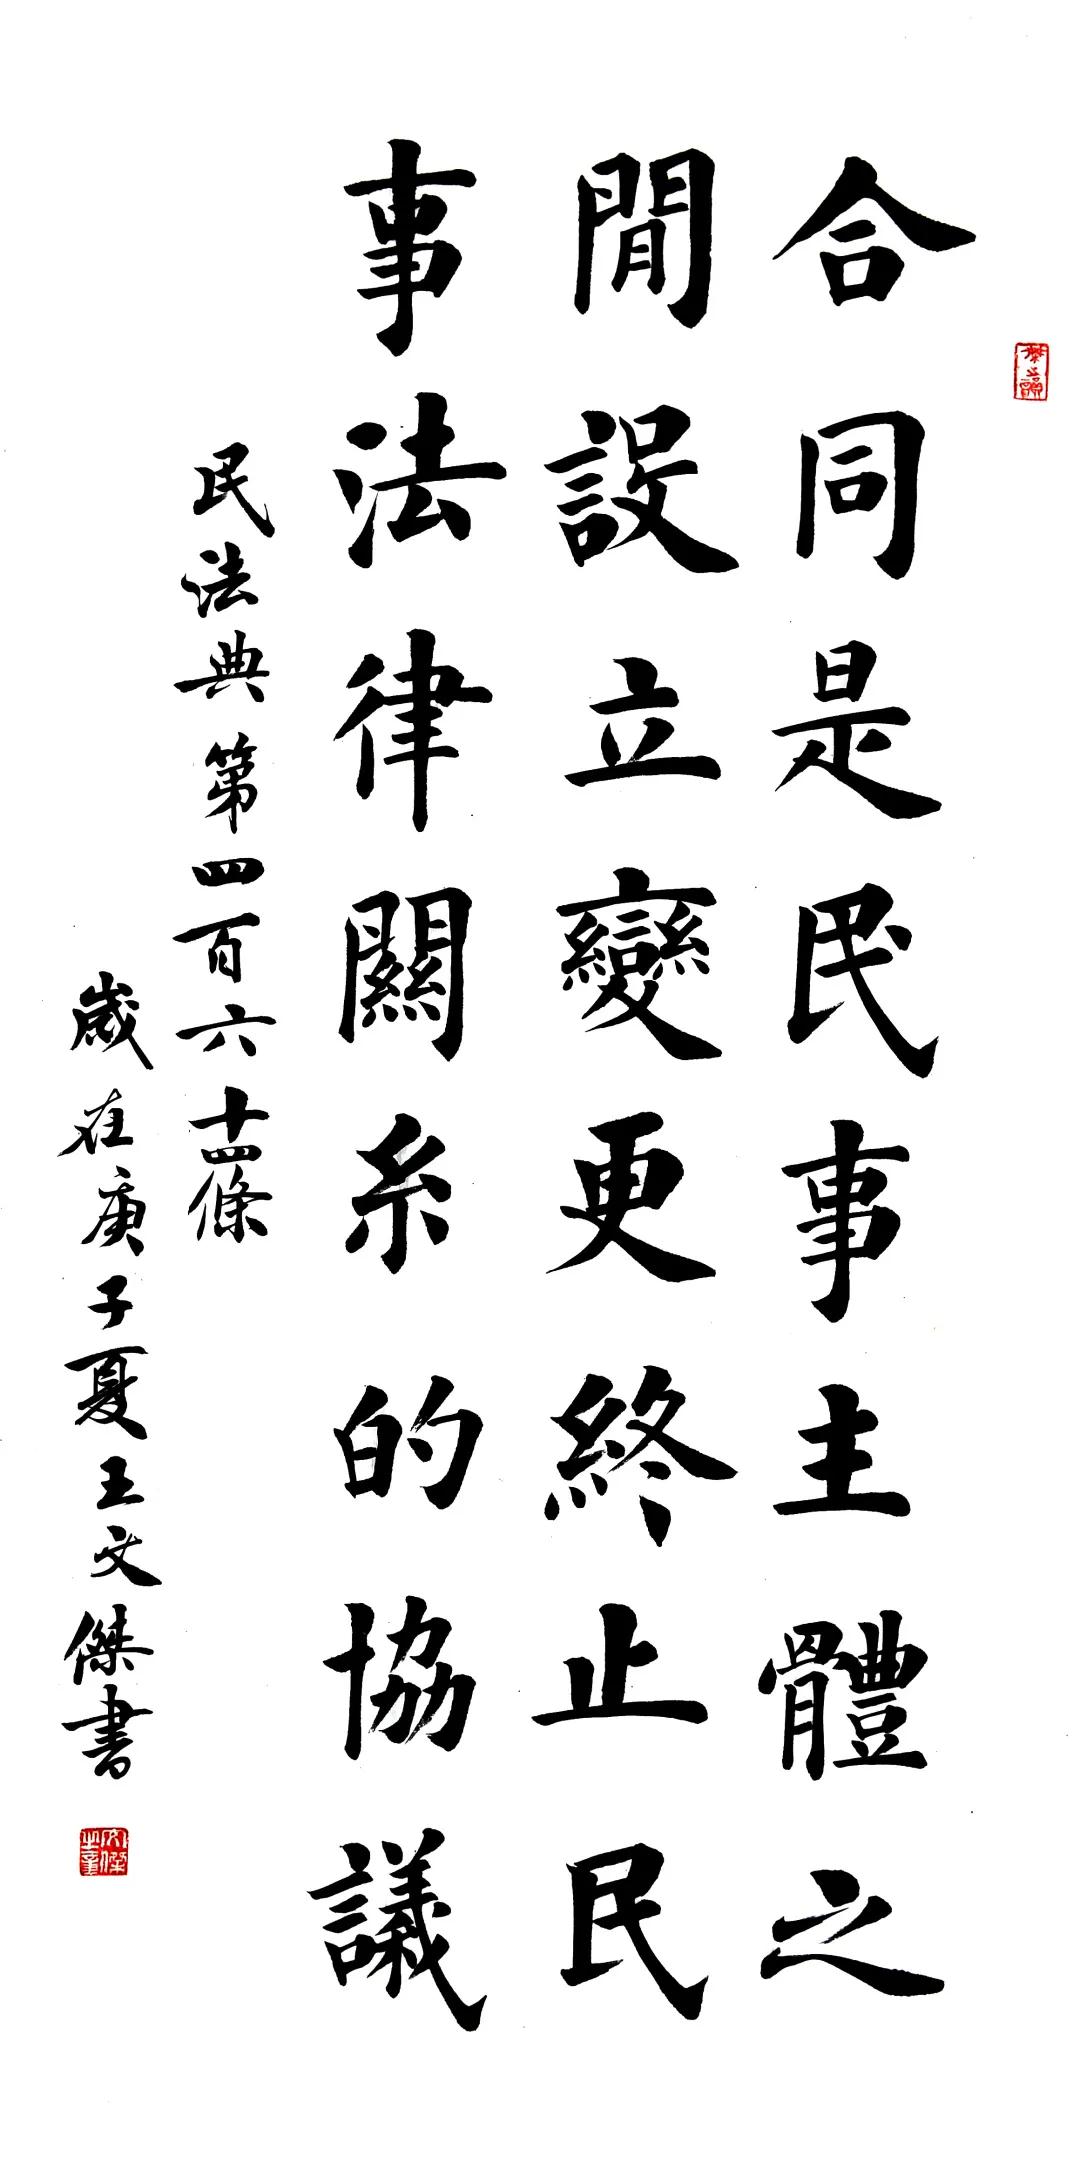 合同是民事主體之
間設立變更終止民
事法律關系的協議
民法典第四百六十四條
歲在庚子夏王文傑書